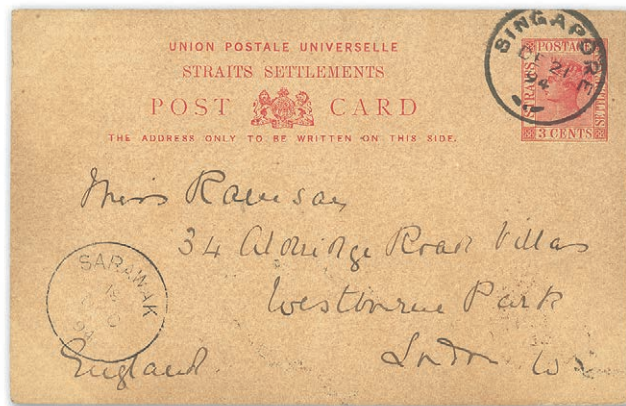 UNION POSTALE UNIVERSELLE
STRAITS SETTLEMENTS
POST CARD
THE ADDRESS ONLY TO BE WRITTEN ON THIS SIDE.
SINGAPORE
DE 21
94
STRAITS
POSTAGE
SETTLE
3 CENTS
Miss Ramsay
34 Aldridge Road Villas
Westbourne Park
London W
England
SARAWAK